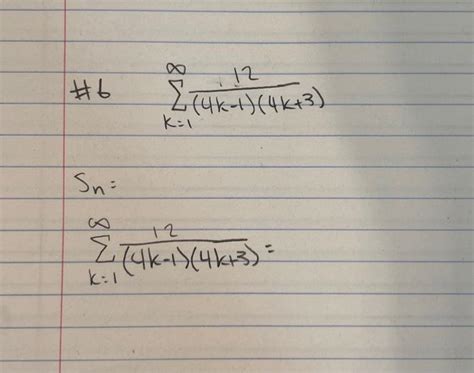 #6 ∞∑k=1 12/((4k-1)(4k+3))
Sn=
∞∑k=1 12/((4k-1)(4k+3)) =